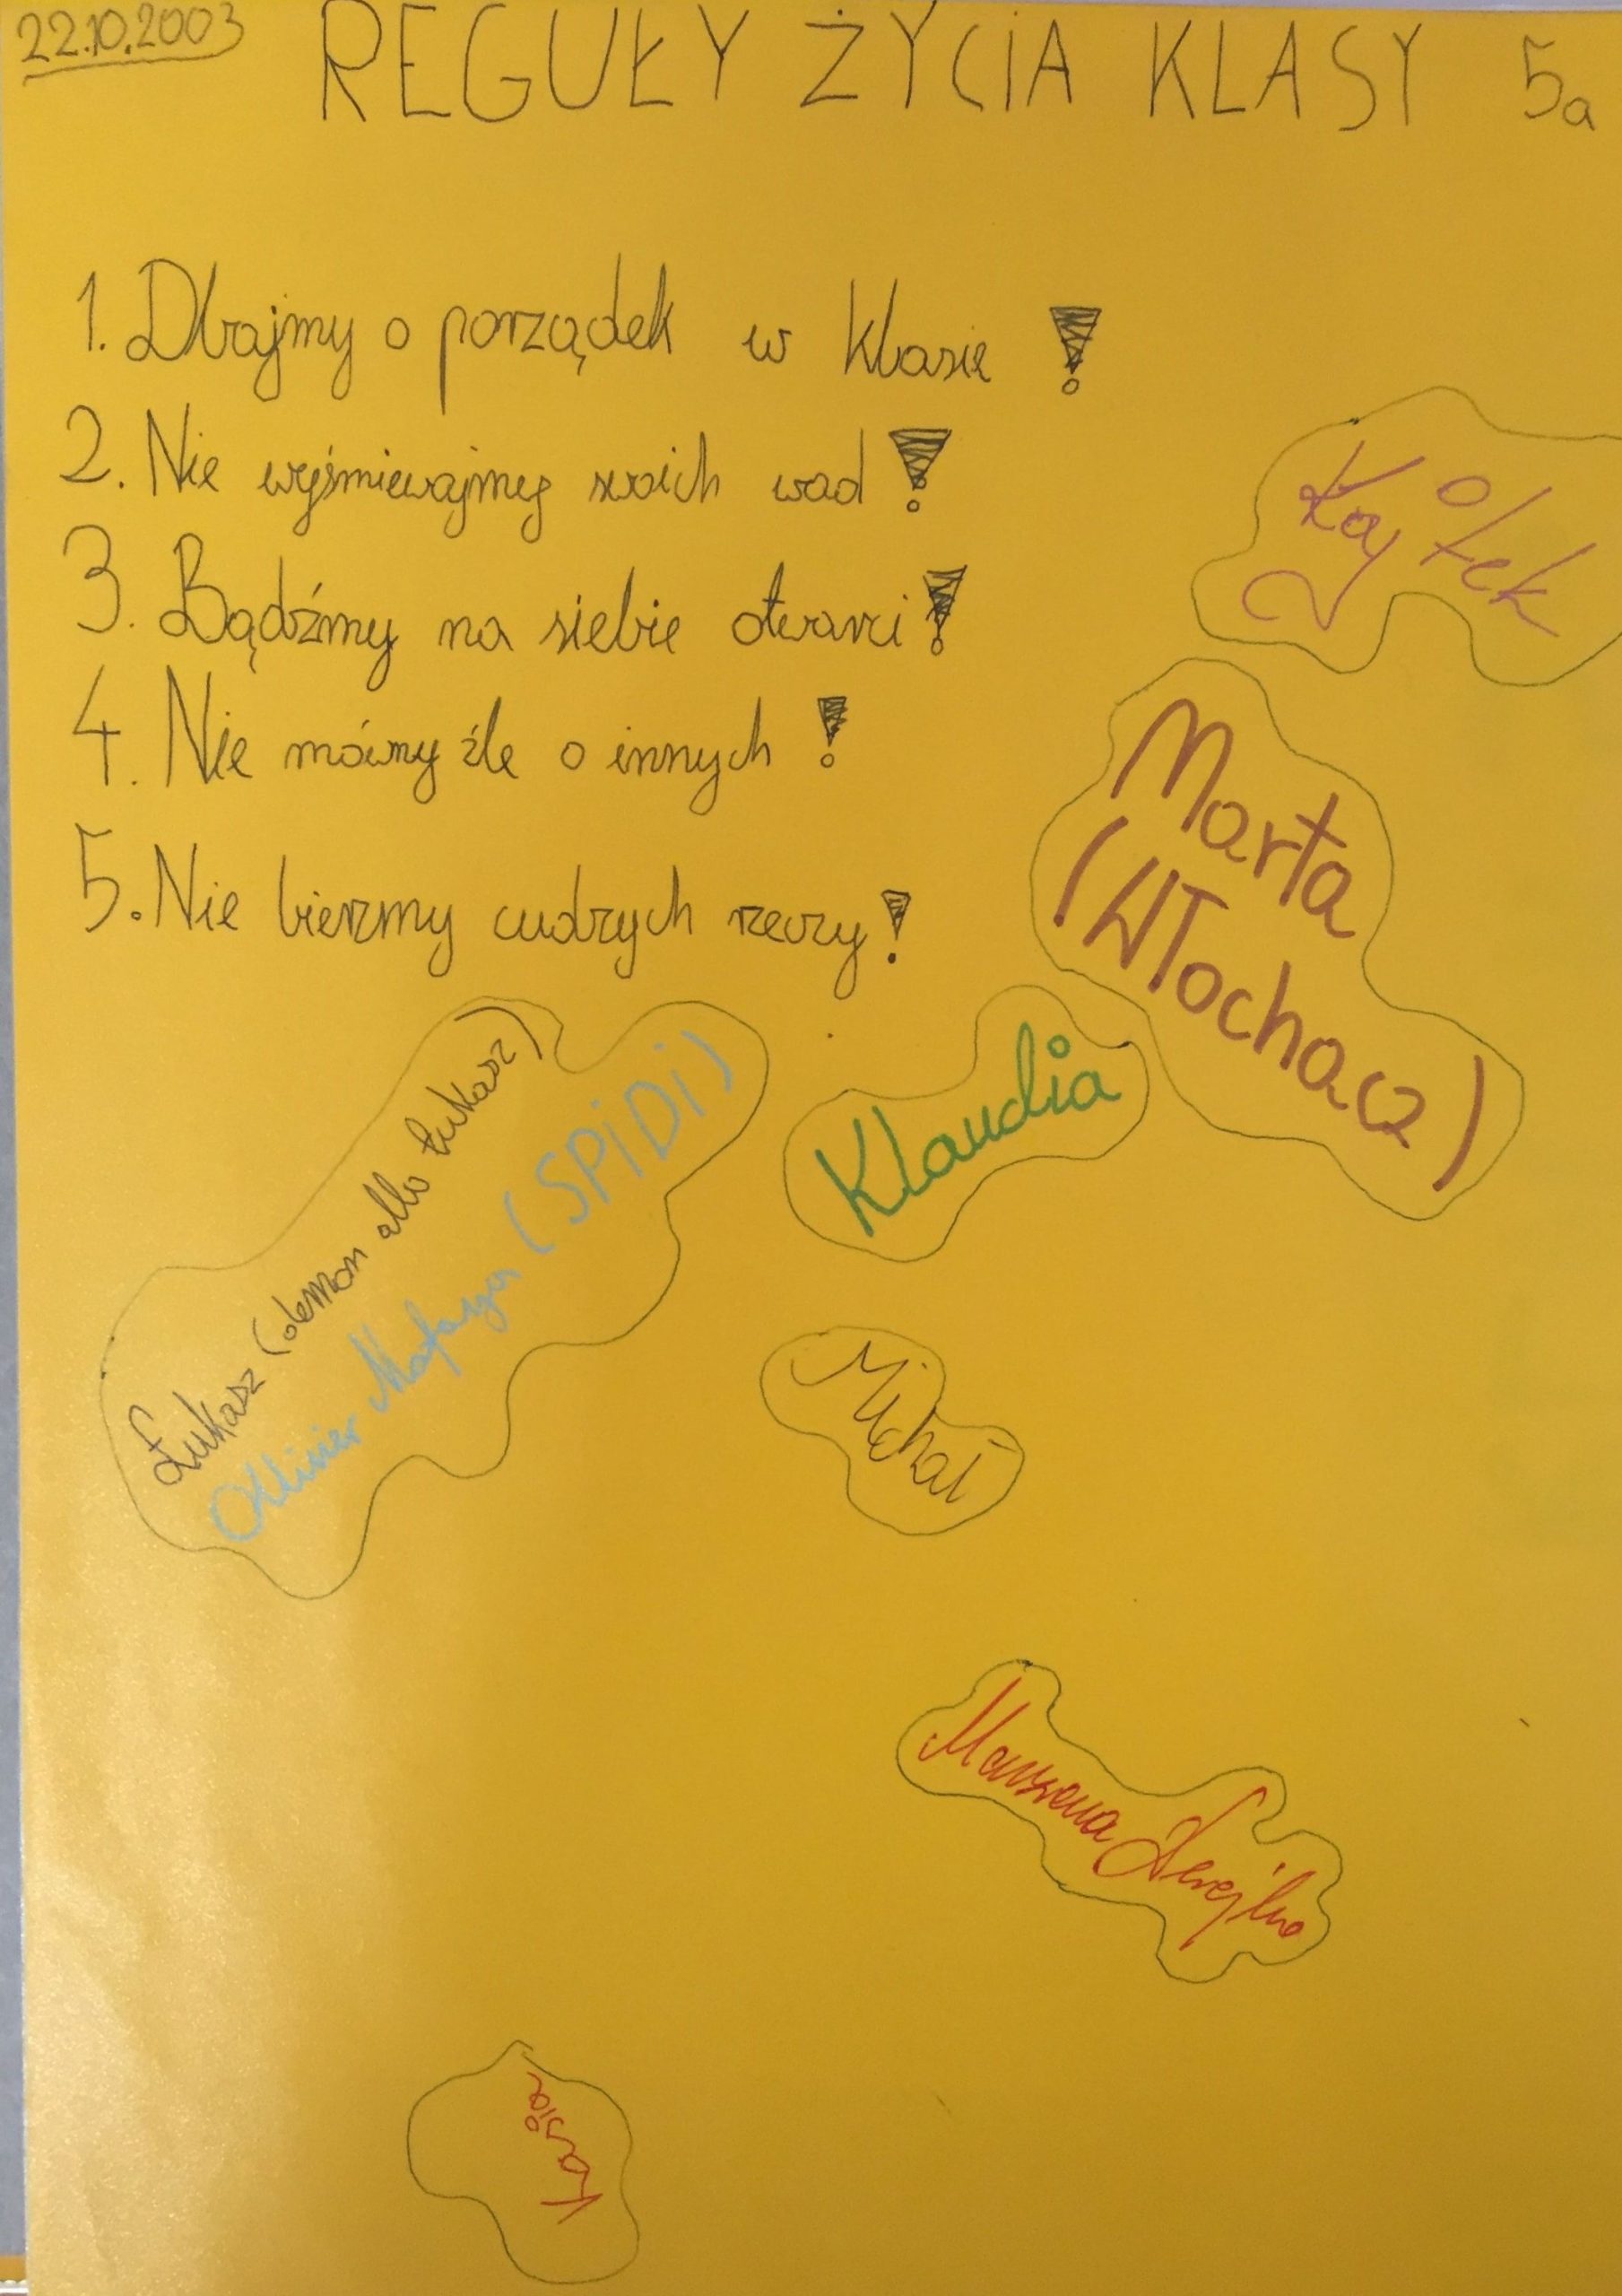 22.10.2003
REGUŁY ŻYCIA KLASY 5a
1. Dbajmy o porządek w klasie!
2. Nie wyśmiewajmy swoich wad!
3. Bądźmy na siebie otwarci!
4. Nie mówmy źle o innych!
5. Nie bierzmy cudzych rzeczy!
Kajtek
Marta
(Włochacz)
Łukasz (demon albo Łukasz)
(SPiDi)
Klaudia
Michał
Marzena
Kasia